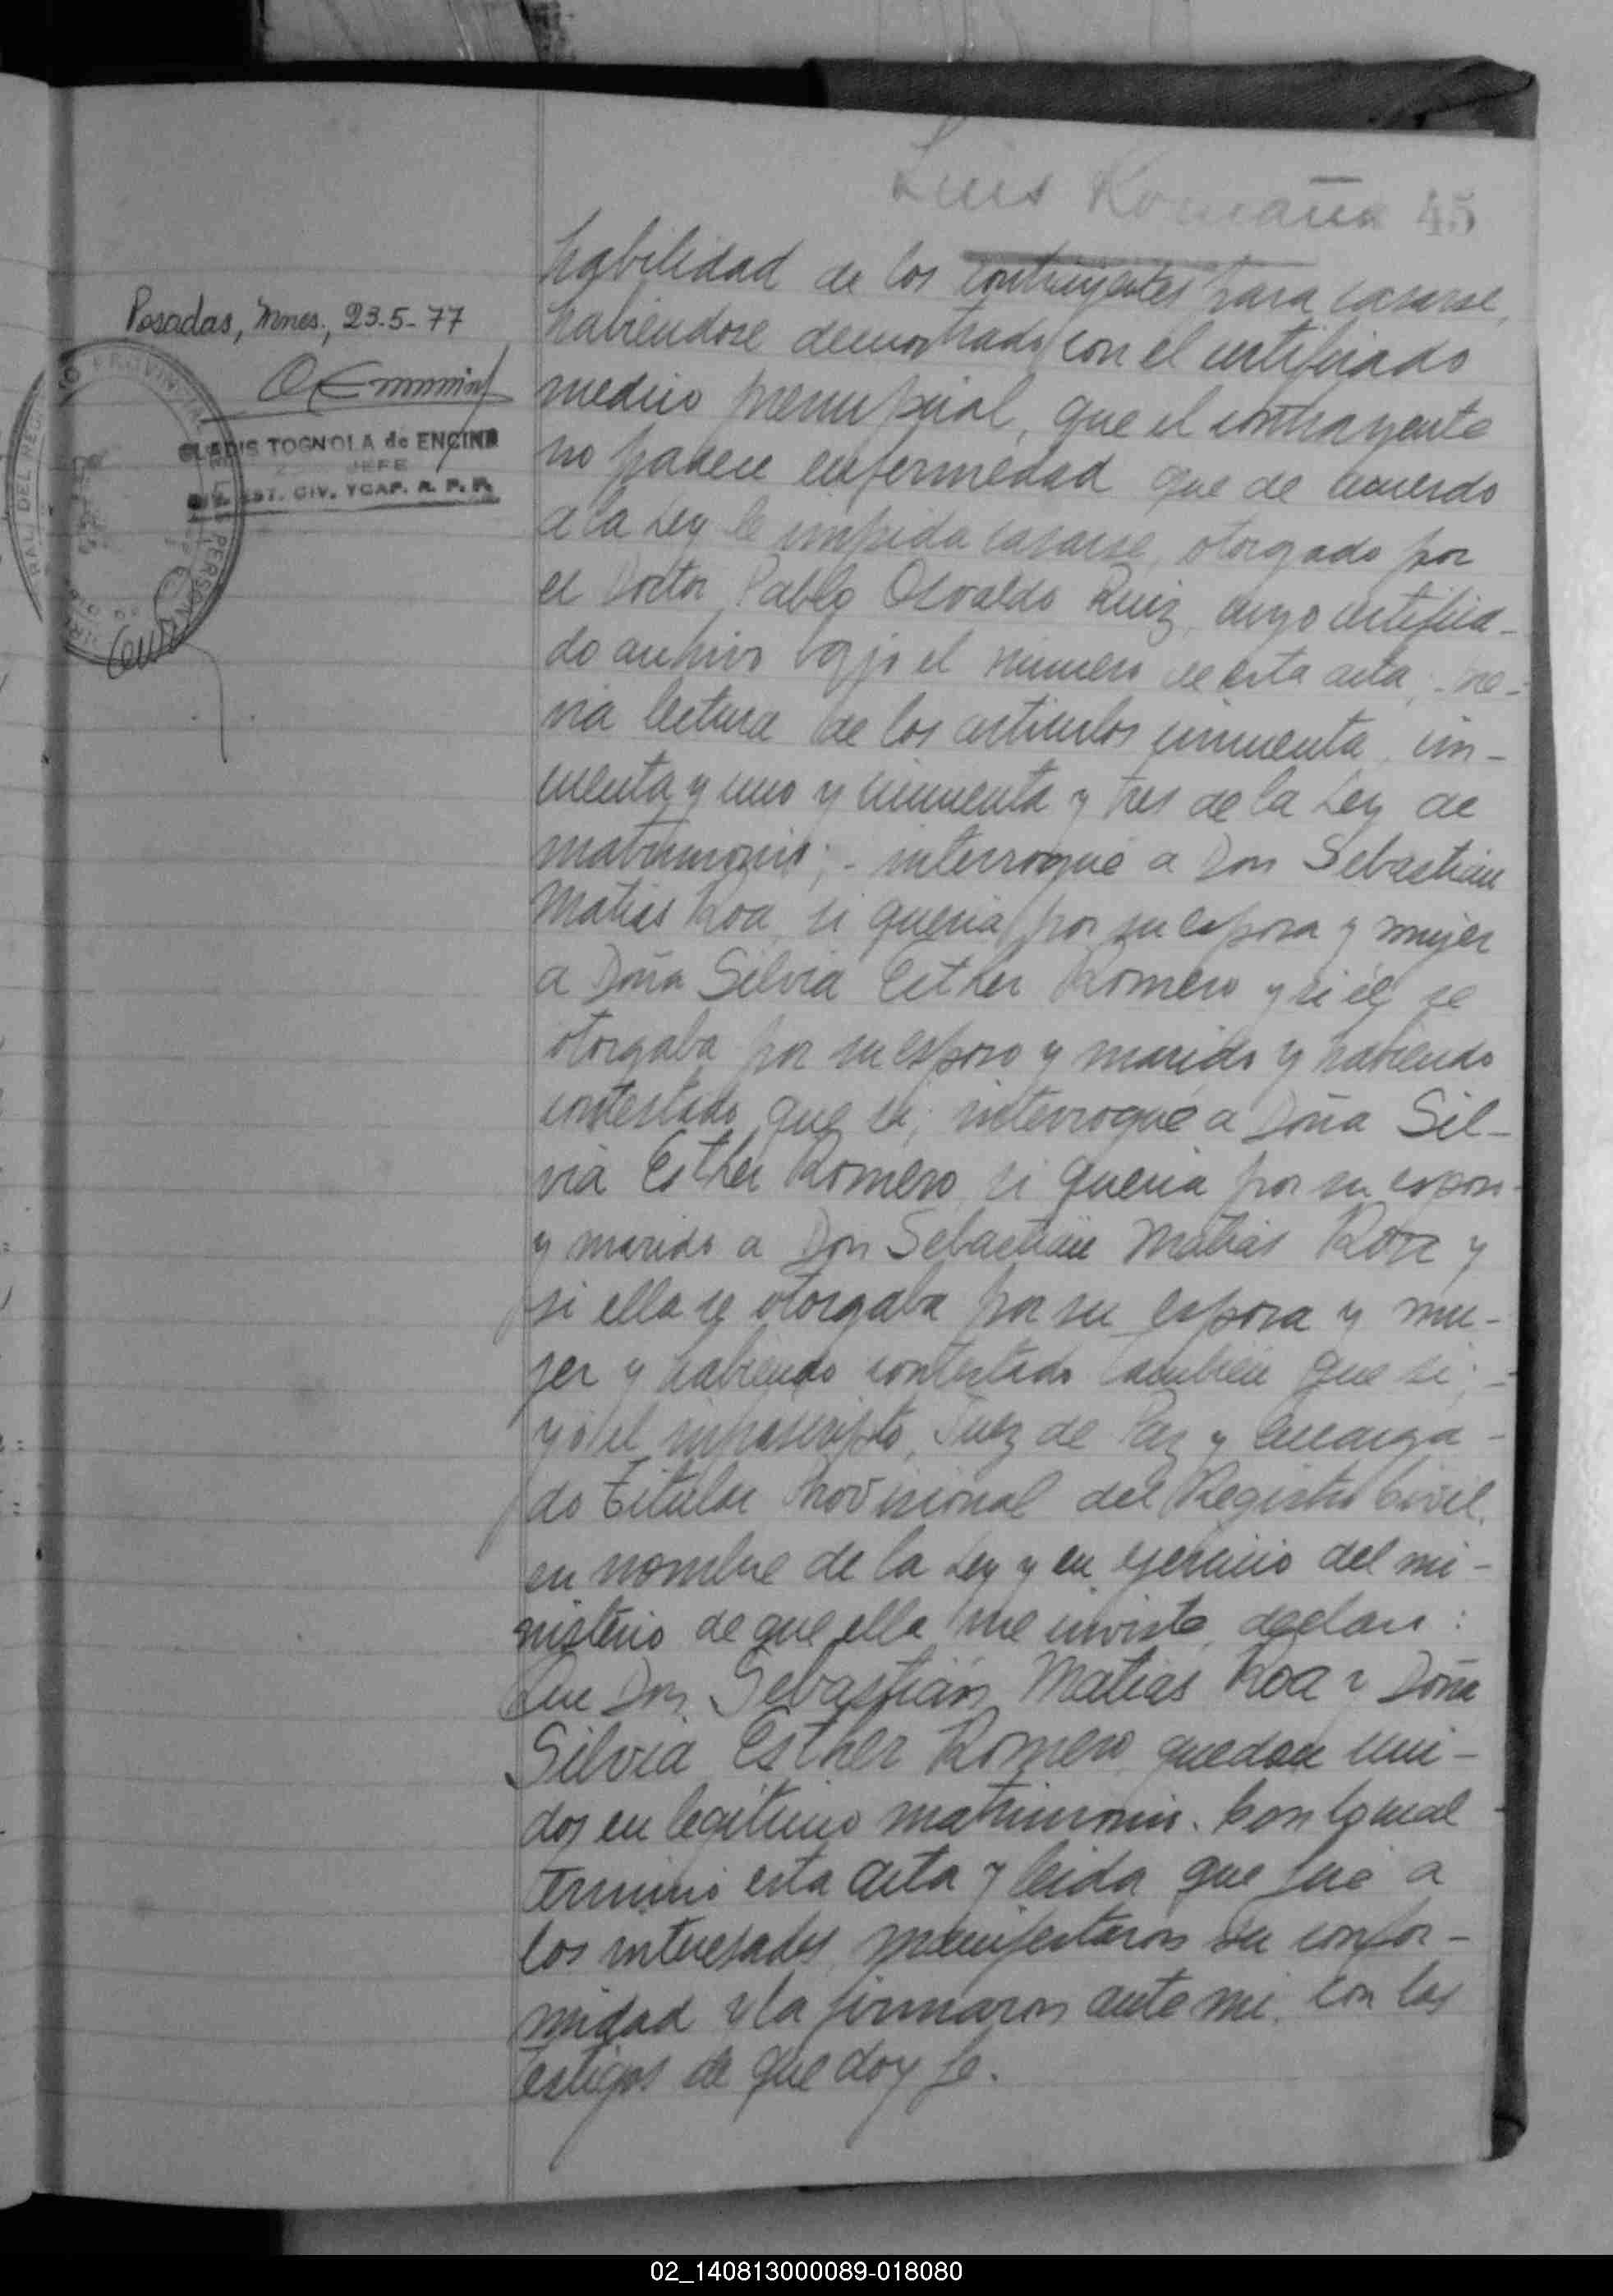 Luis Romaña 45
habilidad de los contrayentes para casarse,
habiendose demostrado con el certificado
medico prenupcial, que el contrayente
no padece enfermedad que de acuerdo
a la Ley le impida casarse, otorgado por
el Doctor Pablo Osvaldo Ruiz, cuyo certifica-
do archivo bajo el número de esta acta; pre-
via lectura de los articulos cincuenta, cin-
cuenta y uno y cincuenta y tres de la Ley de
matrimonio; - interrogué a Don Sebastián
Matias Roa, si queria por su esposa y mujer
a Doña Silvia Esther Romero y si él se
otorgaba por su esposo y marido y habiendo
contestado que si; interrogué a Doña Sil-
via Esther Romero, si queria por su esposo
y marido a Don Sebastián Matias Roa y
si ella se otorgaba por su esposa y mu-
jer y habiendo contestado también que si; -
yo el infrascripto, Juez de Paz y Encarga-
do Titular Provisional del Registro Civil,
en nombre de la Ley y en ejercicio del mi-
nisterio de que ella me inviste, declaro:
Que Don Sebastián Matias Roa y Doña
Silvia Esther Romero quedan uni-
dos en legitimo matrimonio. Con lo cual
termino esta acta y leida que fué a
los interesados, manifestaron su confor-
midad y la firmaron ante mi, con los
testigos de que doy fe.
Posadas, Mnes., 23-5-77
GLADIS TOGNOLA de ENCINA
JEFE
EST. CIV. Y CAP. R. P. P.
02_140813000089-018080